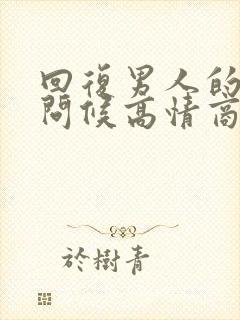 回復男人的
問候高情商
於樹青